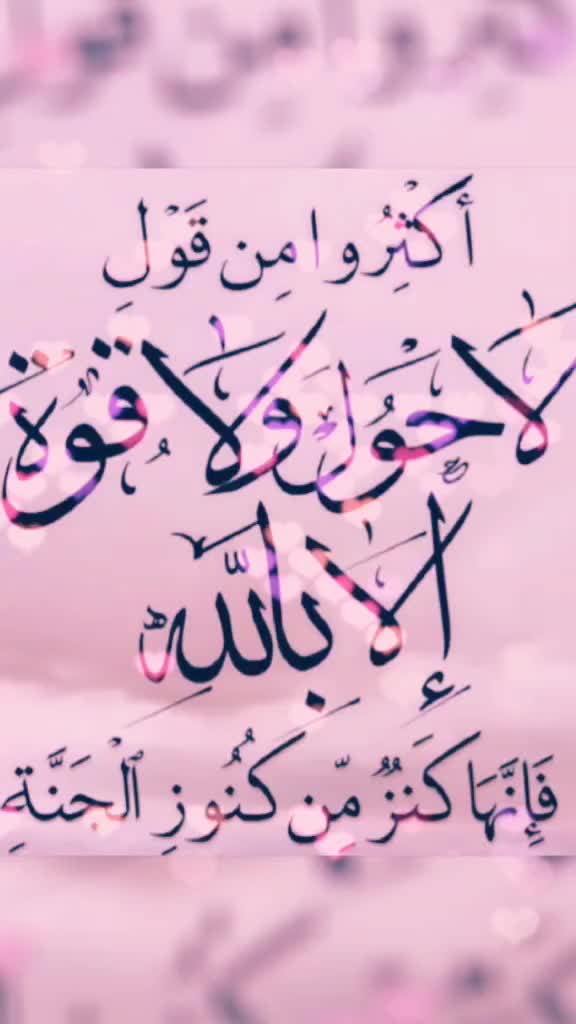 أَكْثِرُوا مِن قَوْلِ
لَا حَوْلَ وَلَا قُوَّةَ
إِلَّا بِاللَّهِ
فَإِنَّهَا كَنْزٌ مِّن كُنُوزِ الْجَنَّةِ